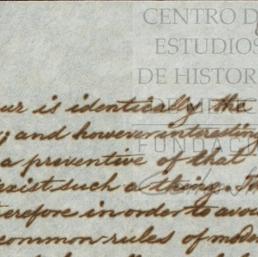 CENTRO D
ESTUDIOS
DE HISTOR
FUNDACI
ur is identically the
; and however interesting
a preventive of that
exist, such a thing.
therefore in order to avoi
common rules of mod